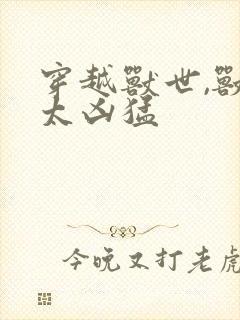 穿越獸世,獸
太凶猛
今晚又打老虎